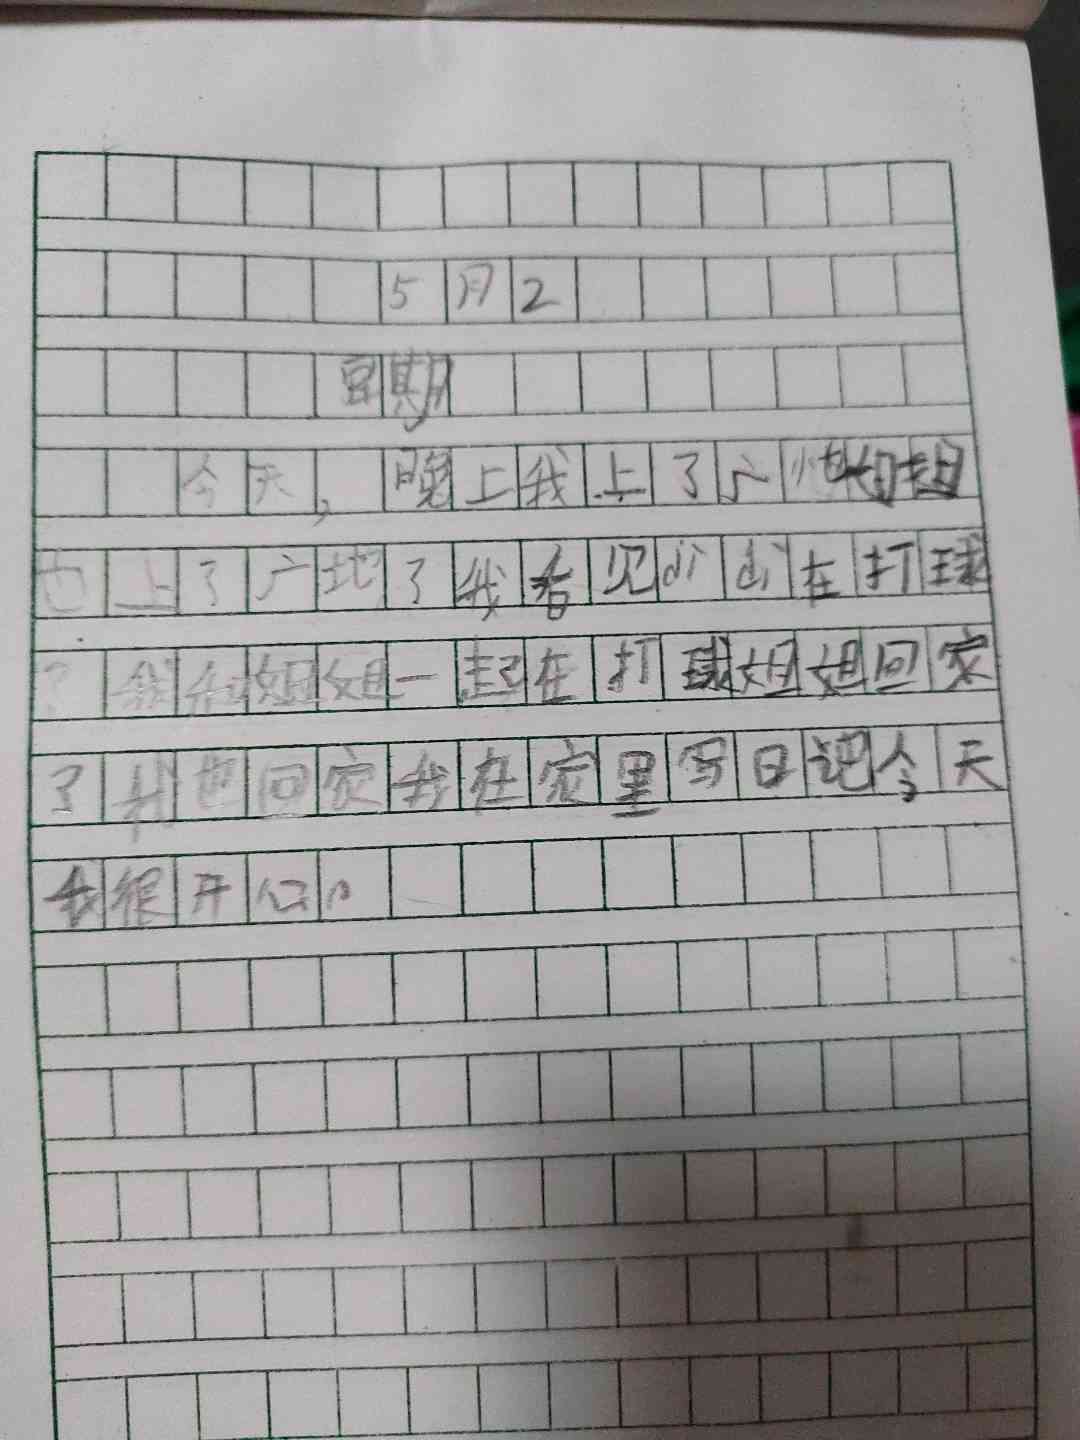 5月2
星期
今天，晚上我上了广地姐姐
也上了广地了我看见didi在打球
?我和姐姐一起在打球姐姐回家
了我也回家我在家里写日记今天
我很开心。